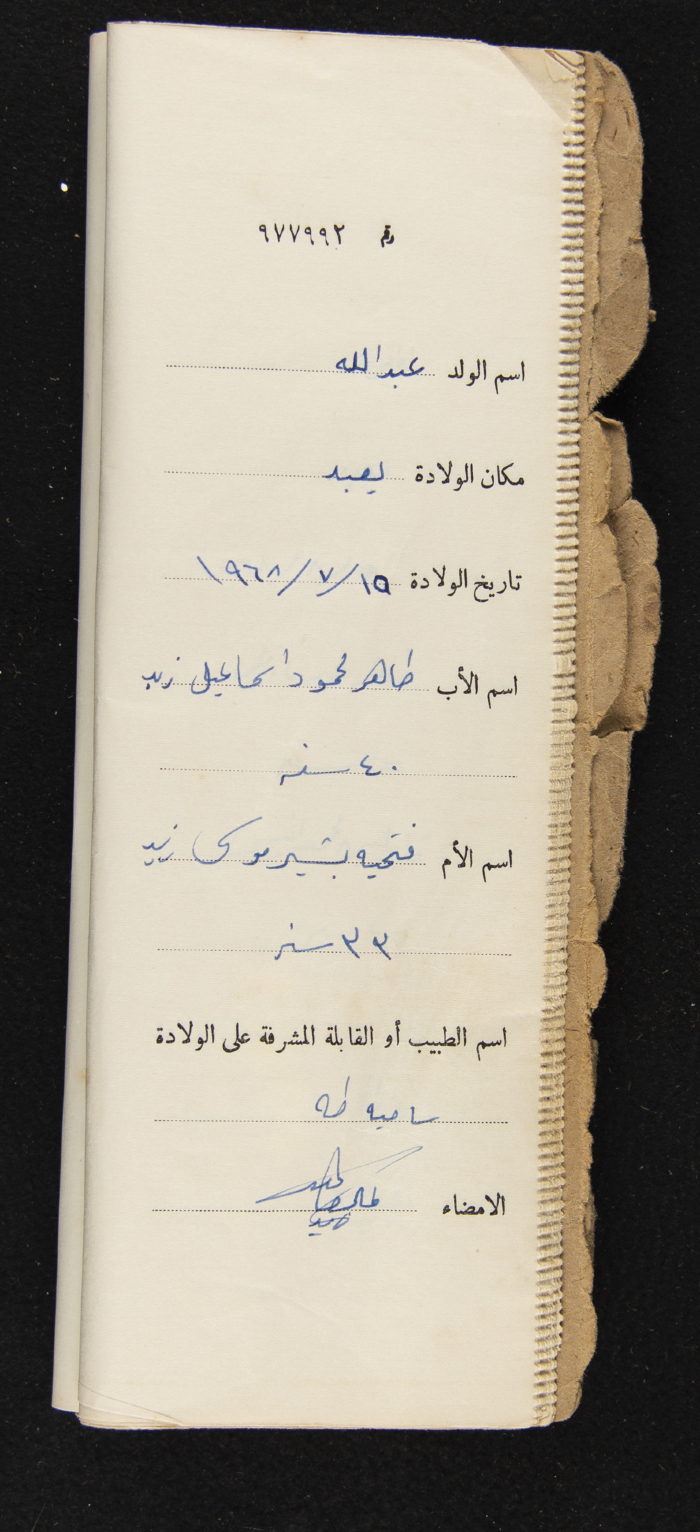 رقم ٩٧٧٩٩٢
اسم الولد عبدالله
مكان الولادة يعبد
تاريخ الولادة ١٥/٧/١٩٦٨
اسم الأب طاهر محمود اسماعيل زيد
٤٠ سنه
اسم الأم فتحيه بشير موسى زيد
٣٣ سنه
اسم الطبيب أو القابلة المشرفة على الولادة
ساميه طه
الامضاء